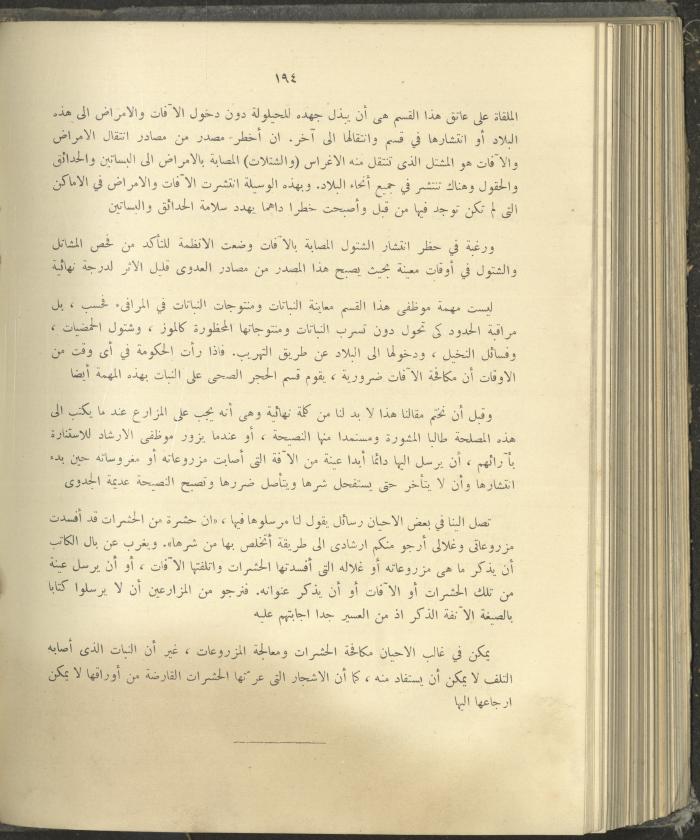 ١٩٤
الملقاة على عاتق هذا القسم هى أن يبذل جهده للحيلولة دون دخول الآفات والامراض الى هذه
البلاد أو انتشارها في قسم وانتقالها الى آخر. ان أخطر مصدر من مصادر انتقال الامراض
والآفات هو المشتل الذى تنتقل منه الاغراس (والشتلات) المصابة بالامراض الى البساتين والحدائق
والحقول وهناك تنتشر في جميع أنحاء البلاد. وبهذه الوسيلة انتشرت الآفات والامراض في الاماكن
التى لم تكن توجد فيها من قبل وأصبحت خطرا داهما يهدد سلامة الحدائق والبساتين
ورغبة في حظر انتشار الشتول المصابة بالآفات وضعت الانظمة للتأكد من فحص المشاتل
والشتول في أوقات معينة بحيث يصبح هذا المصدر من مصادر العدوى قليل الاثر لدرجة نهائية
ليست مهمة موظفى هذا القسم معاينة النباتات ومنتوجات النباتات في المرافىء فحسب ، بل
مراقبة الحدود كى تحول دون تسرب النباتات ومنتوجاتها المحظورة كالموز ، وشتول الحمضيات ،
وفسائل النخيل ، ودخولها الى البلاد عن طريق التهريب. فاذا رأت الحكومة في أى وقت من
الاوقات أن مكافحة الآفات ضرورية ، يقوم قسم الحجر الصحى على النبات بهذه المهمة أيضا
وقبل أن نختم مقالنا هذا لا بد لنا من كلمة نهائية وهى أنه يجب على المزارع عند ما يكتب الى
هذه المصلحة طالبا المشورة ومستمدا منها النصيحة ، أو عندما يزور موظفى الارشاد للاستنارة
بآرائهم ، أن يرسل اليها دائما أبدا عينة من الآفة التى أصابت مزروعاته أو مغروساته حين بدء
انتشارها وأن لا يتأخر حتى يستفحل شرها ويتأصل ضررها وتصبح النصيحة عديمة الجدوى
تصل الينا في بعض الاحيان رسائل يقول لنا مرسلوها فيها ، «ان حشرة من الحشرات قد أفسدت
مزروعاتى وغلالى أرجو منكم ارشادى الى طريقة أتخلص بها من شرها». ويغرب عن بال الكاتب
أن يذكر ما هى مزروعاته أو غلاله التى أفسدتها الحشرات واتلفتها الآفات ، أو أن يرسل عينة
من تلك الحشرات أو الآفات أو أن يذكر عنوانه. فنرجو من المزارعين أن لا يرسلوا كتابا
بالصيغة الآنفة الذكر اذ من العسير جدا اجابتهم عليه
يمكن في غالب الاحيان مكافحة الحشرات ومعالجة المزروعات ، غير أن النبات الذى أصابه
التلف لا يمكن أن يستفاد منه ، كما أن الاشجار التى عرّتها الحشرات القارضة من أوراقها لا يمكن
ارجاعها اليها